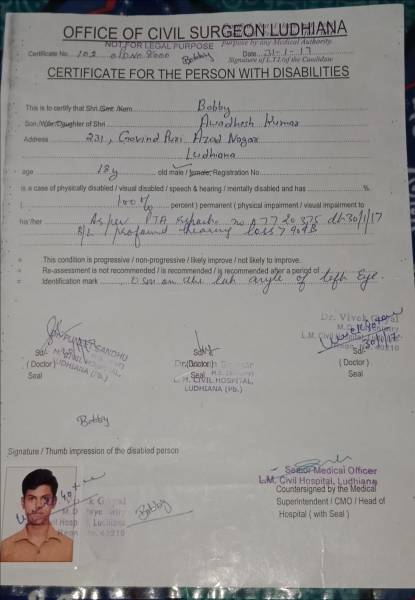 OFFICE OF CIVIL SURGEON LUDHIANA
NOT FOR LEGAL PURPOSE
Purpose by any Medical Authority
Certificate No. 102
Date 31-1-17
Bobby
Signature of L.T.I of the Candidate
CERTIFICATE FOR THE PERSON WITH DISABILITIES
This is to certify that Shri /Smt. /Kum Bobby
Son /Wife /Daughter of Shri Awadhesh Kumar
Address 231, Govind Puri Azad Nagar
Ludhiana
age 18y old male / female, Registration No
is a case of physically disabled / visual disabled / speech & hearing / mentally disabled and has %.
( 100% percent ) permanent ( physical impairment / visual impairment to
his/her As per PTA no A 7720375 dt 30/1/17
B/L profound hearing loss > 90dB
= This condition is progressive / non-progressive / likely improve / not likely to improve.
= Re-assessment is not recommended / is recommended / is recommended after a period of
= Identification mark on the angle of left Eye.
Dr. Vivek Goyal
Sd/-
( Doctor )
Seal
LUDHIANA (Pb.)
Sd/-
(Doctor)
Seal
L. M. CIVIL HOSPITAL,
LUDHIANA (Pb.)
30/1/17
Sd/-
( Doctor )
Seal
Bobby
Signature / Thumb impression of the disabled person
Bobby
Senior Medical Officer
L.M. Civil Hospital, Ludhiana
Countersigned by the Medical
Superintendent / CMO / Head of
Hospital ( with Seal )